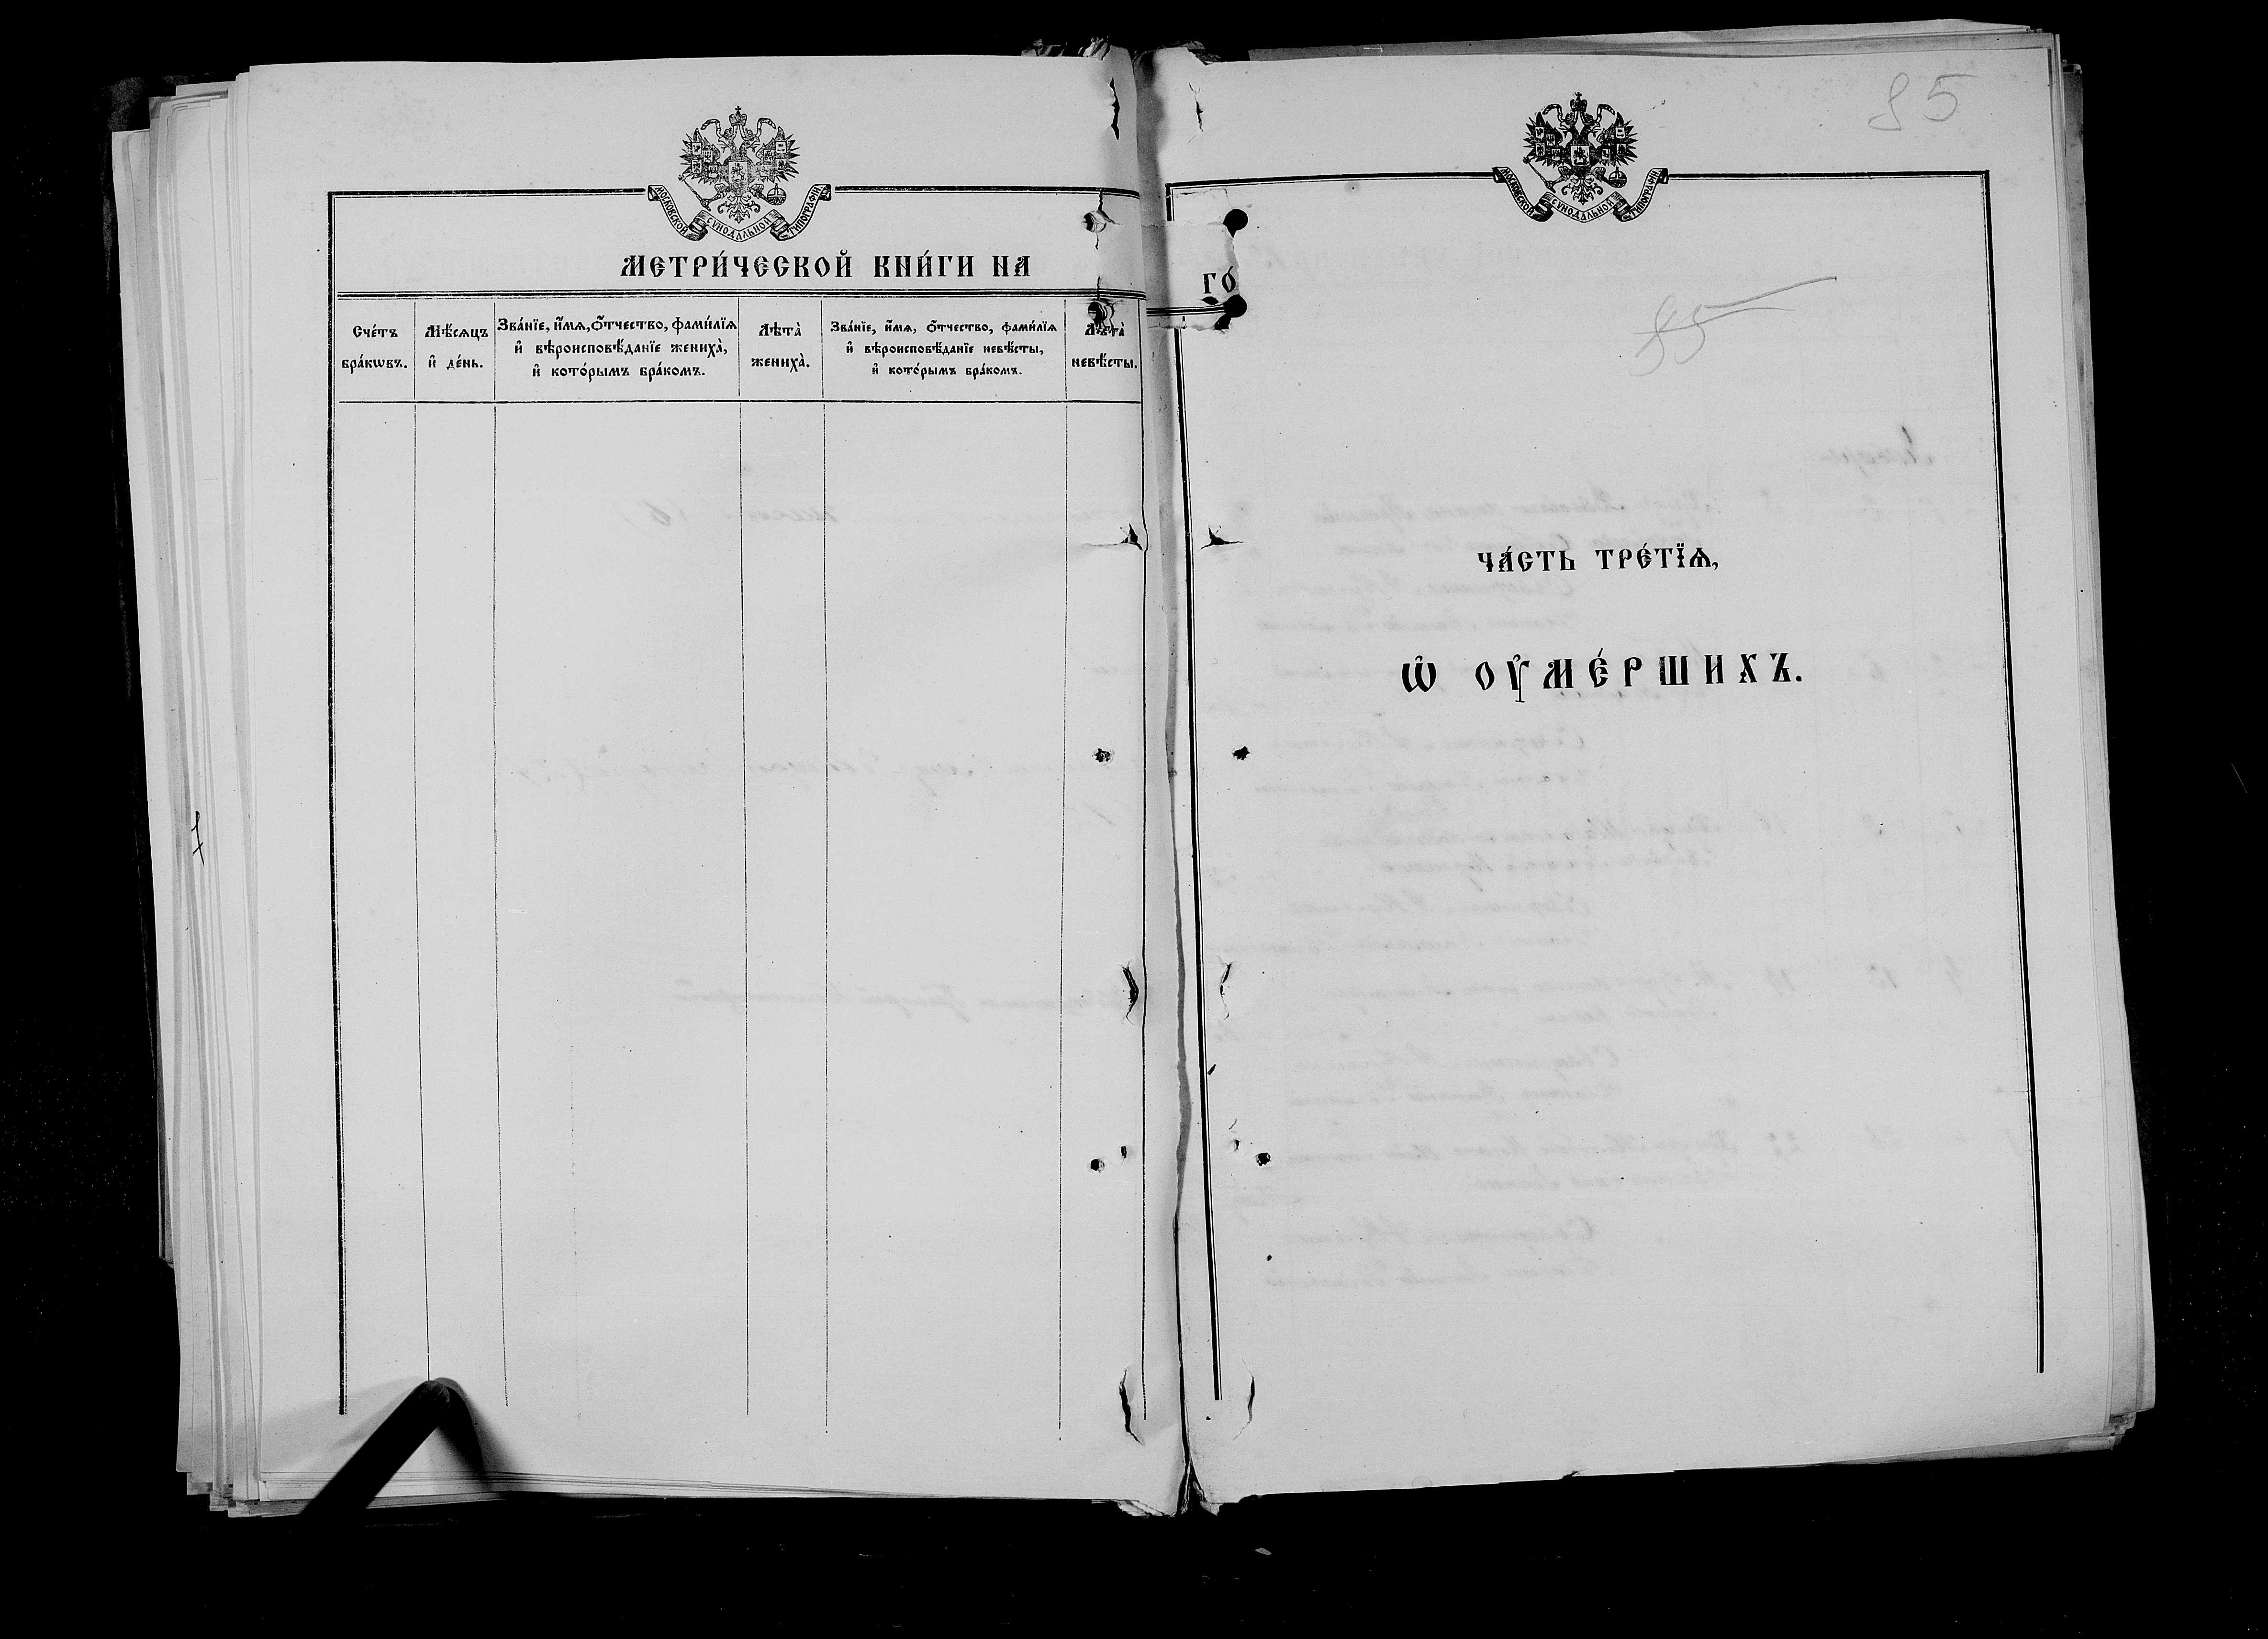 МОСКОВСКОЙ СѴНОДАЛЬНОЙ ТИПОГРАФІИ
МЕТРИ́ЧЕСКОЙ КНИ́ГИ НА
Сче́тъ бра́кѡвъ.
Мѣ́сѧцъ и҆ де́нь.
Зва́нїе, и҆́мѧ, ѻ҆́тчество, фамѝлїѧ
и҆ вѣроисповѣ́данїе жениха̀,
и҆ кото́рымъ бра́комъ.
Лѣта̀ жениха̀.
Зва́нїе, и҆́мѧ, ѻ҆́тчество, фамѝлїѧ
и҆ вѣроисповѣ́данїе невѣ́сты,
и҆ кото́рымъ бра́комъ.
Лѣта̀ невѣ́сты.
85
МОСКОВСКОЙ СѴНОДАЛЬНОЙ ТИПОГРАФІИ
ГО́
85
ЧА́СТЬ ТРЕ́ТЇѦ,
Ѡ҆ ОУ҆МЕ́РШИХЪ.